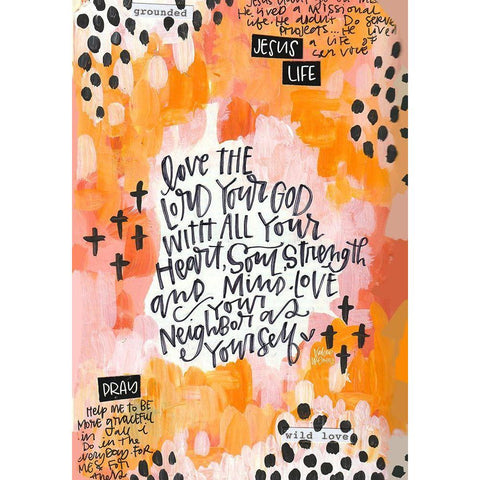 grounded
He lived a missional
life. He didn't Do service
projects... He lived
a life of
service
JESUS
LIFE
love THE
LORD YOUR GOD
WITH ALL YOUR
Heart, Soul, Strength
and MIND. LOVE
YOUR
NeigHBOR as
Yourself
PRAY
HELP ME TO BE
MORE graceful
in all I
DO in the
everyday FOR
ME & FOR
others
wild love